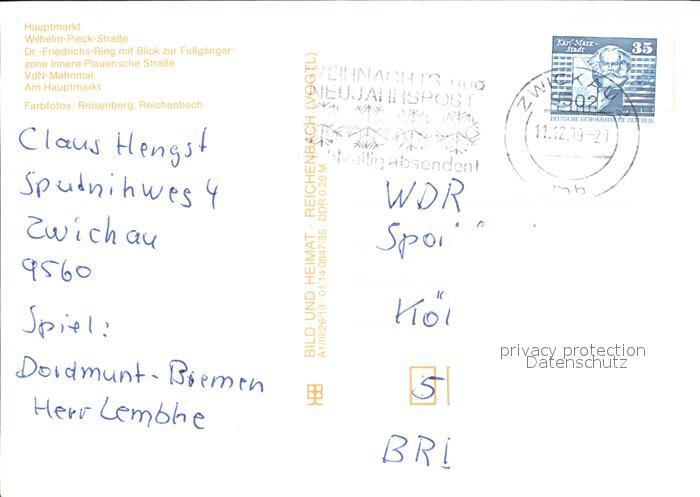 Hauptmarkt
Wilhelm-Pieck-Straße
Dr.-Friedrichs-Ring mit Blick zur Fußgänger-
zone Innere Plauensche Straße
VdN-Mahnmal
Am Hauptmarkt
Farbfotos: Reisenberg, Reichenbach
Claus Hengst
Spudnihweg 4
Zwichau
9560
Spiel:
Dordmunt-Bremen
Herr Lembhe
BILD UND HEIMAT · REICHENBACH (VOGTL)
A1/III/26/13 · 01 14 0847/35 DDR 0,20 M
WEIHNACHTS- und
NEUJAHRSPOST
absenden!
Karl-Marx-
Stadt
35
DEUTSCHE DEMOKRATISCHE REPUBLIK
ZWICKAU 2
11.12.
mb
WDR
Spor
Köl
5
BRD
privacy protection
Datenschutz